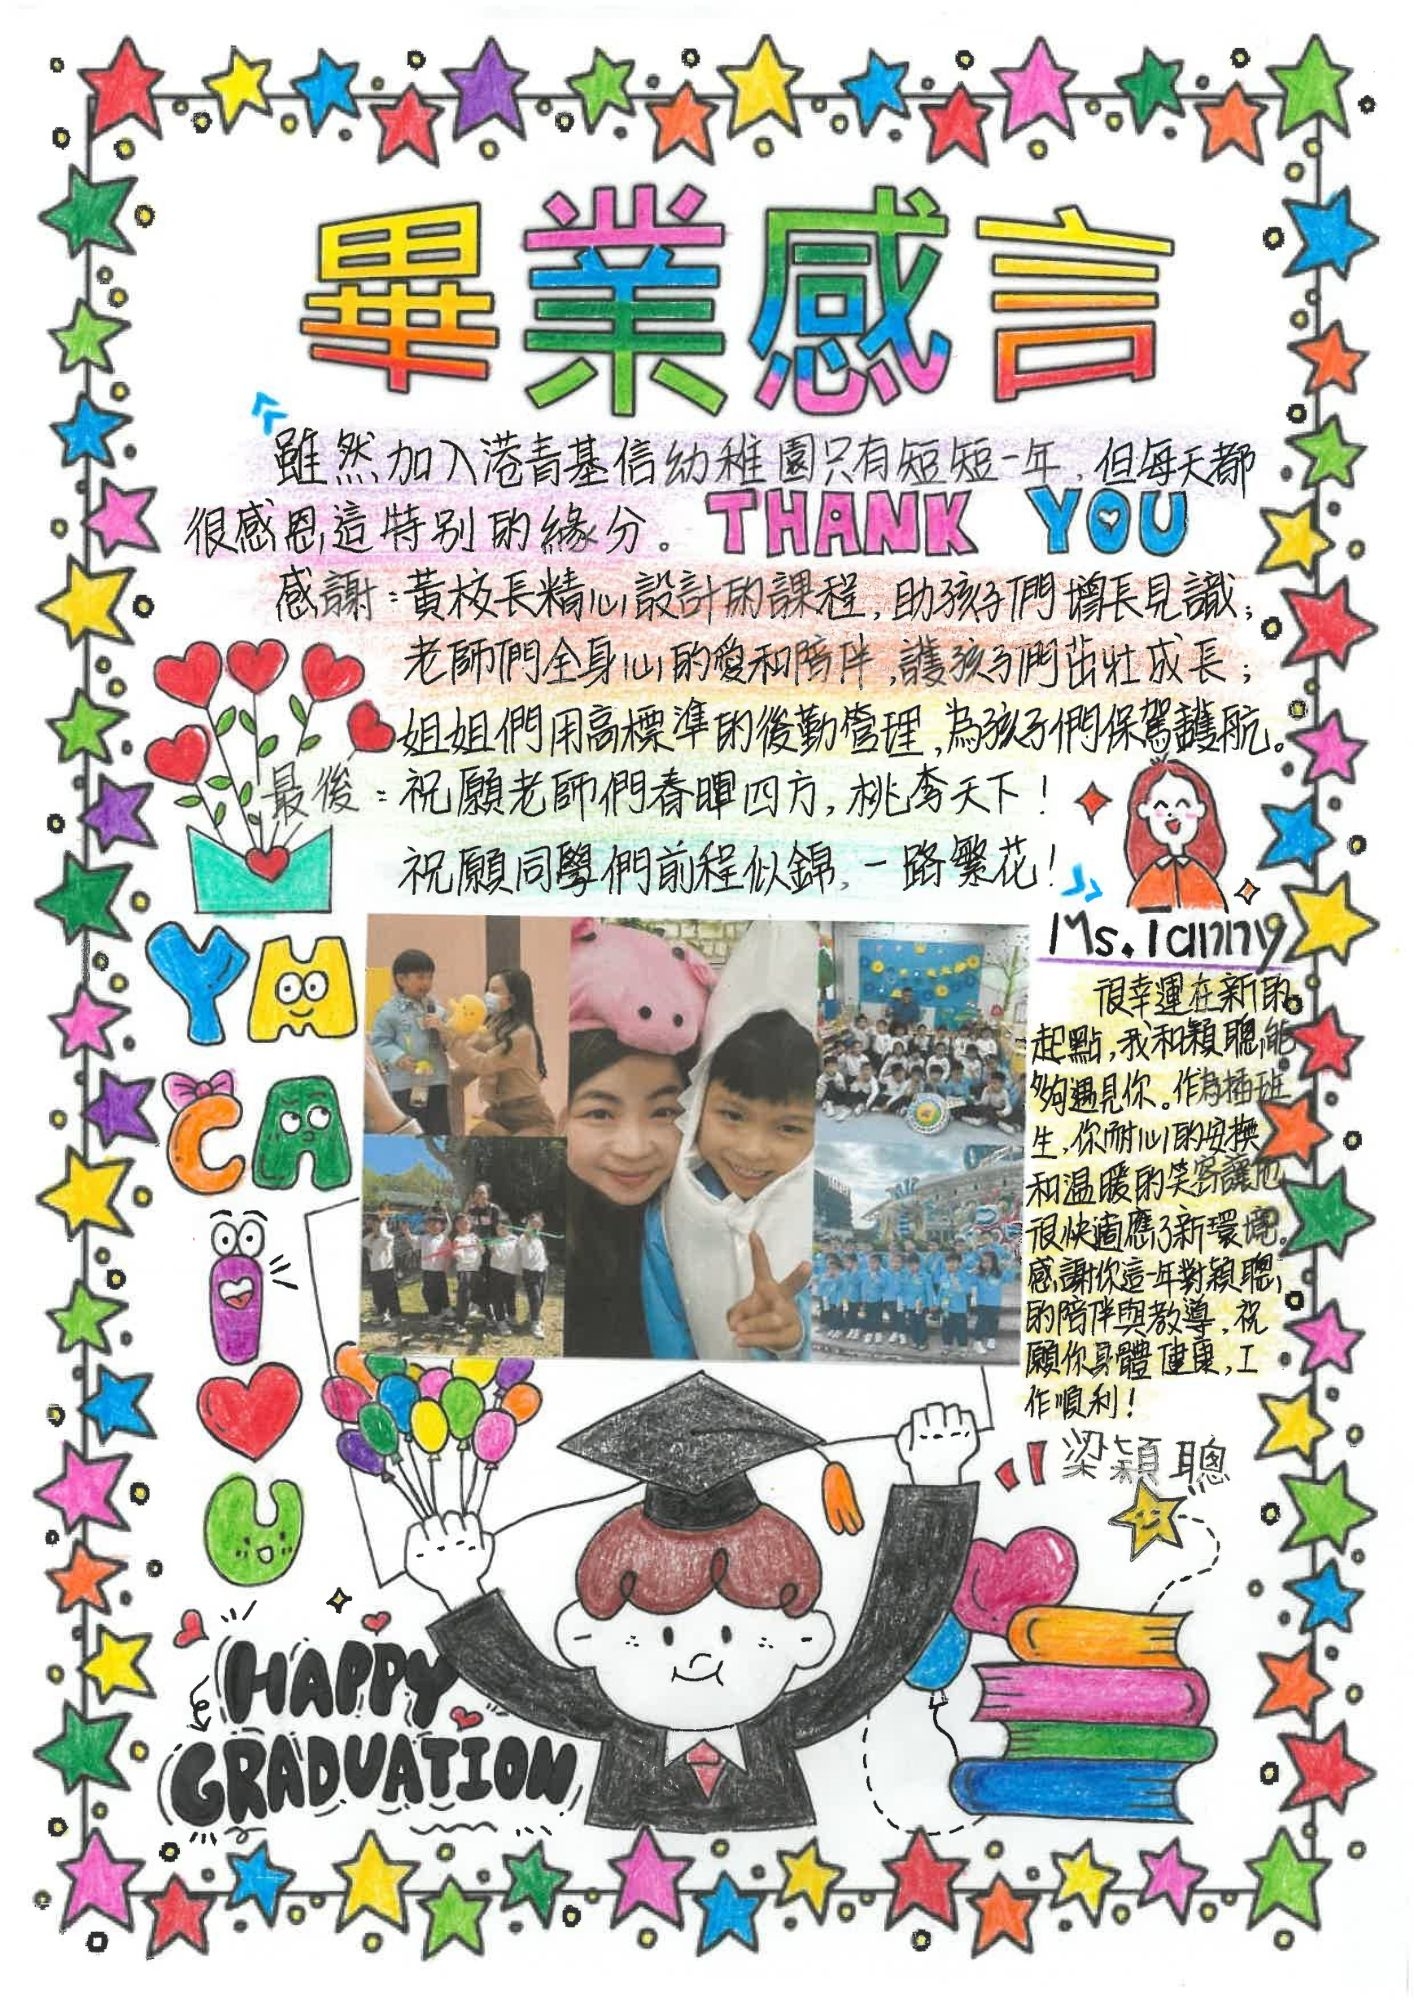 畢業感言
雖然加入港青基信幼稚園只有短短一年，但每天都
很感恩這特別的緣分。
THANK YOU
感謝：黃校長精心設計的課程，助孩子們增長見識；
老師們全身心的愛和陪伴，護孩子們茁壯成長；
姐姐們用高標準的後勤管理，為孩子們保駕護航。
最後：祝願老師們春暉四方，桃李天下！
祝願同學們前程似錦，一路繁花！
YM
CA
I
U
Ms. Tanny
很幸運在新的
起點，我和穎聰能
夠遇見你。作為插班
生，你耐心的安撫
和溫暖的笑容讓他
很快適應了新環境。
感謝你這一年對穎聰
的陪伴與教導，祝
願你身體健康，工
作順利！
梁穎聰
HAPPY
GRADUATION